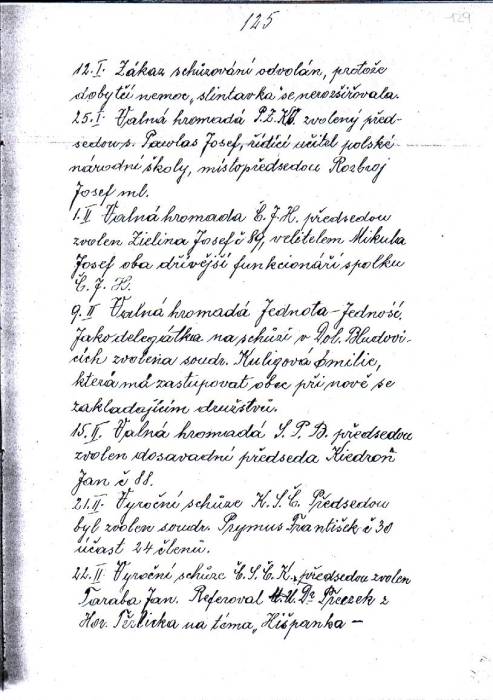 125
129
12.I. Zákaz schůzování odvolán, protože
dobytčí nemoc „slintavka" se nerozšiřovala.
25.I. Valná hromada P.Z.KO. zvolený před-
sedou s. Pawlas Josef, řídící učitel polské
národní školy, místopředsedou Rozbroj
Josef ml.
1.II Valná hromada Č.J.H. předsedou
zvolen Zielina Josef č 89, velitelem Mikula
Josef oba dřívější funkcionáři spolku
Č.J.H.
9.II Valná hromada Jednota-Jedność.
Jako delegátka na schůzi v Dol. Bludovi-
cích zvolena soudr. Kuligová Emilie,
která má zastupovat obec při nově se
zakladajícím družstvu.
15.II. Valná hromadá S.P.B. předsedou
zvolen dosavadní předseda Kiedroň
Jan č 88.
21.II. Vyroční schůze K.S.Č. Předsedou
byl zvolen soudr. Prymus František č 30
účast 24 členů.
22.II. Vyroční schůze Č.S.Č.K. předsedou zvolen
Taraba Jan. Referoval Dr Preczek z
Hor. Těrlicka na téma „Hišpanka –